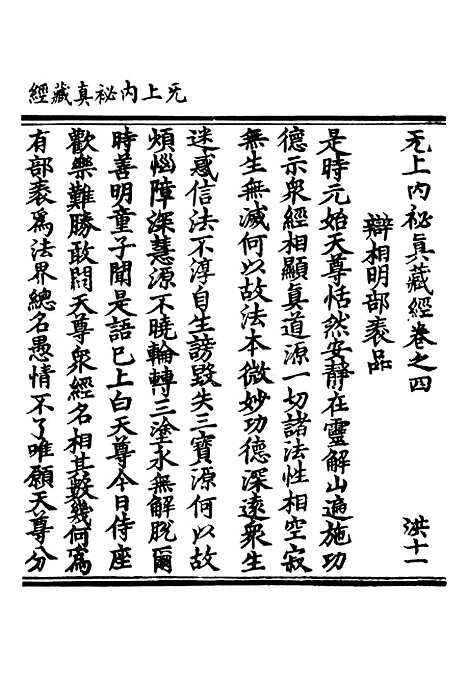 无上內祕真藏經
无上內祕真藏經卷之四 洪十一
辯相明部袠品
是時元始天尊恬然安靜在靈解山遍施功
德示衆經相顯真道源一切諸法性相空寂
無生無滅何以故法本微妙功德深遠衆生
迷惑信法不淳自生謗毀失三寶源何以故
煩惱障深慧源不曉輪轉三塗永無解脫爾
時善明童子聞是語已上白天尊今日侍座
歡樂難勝敢問天尊衆經名相其數幾何爲
有部袠爲法界總名愚情不了唯願天尊分